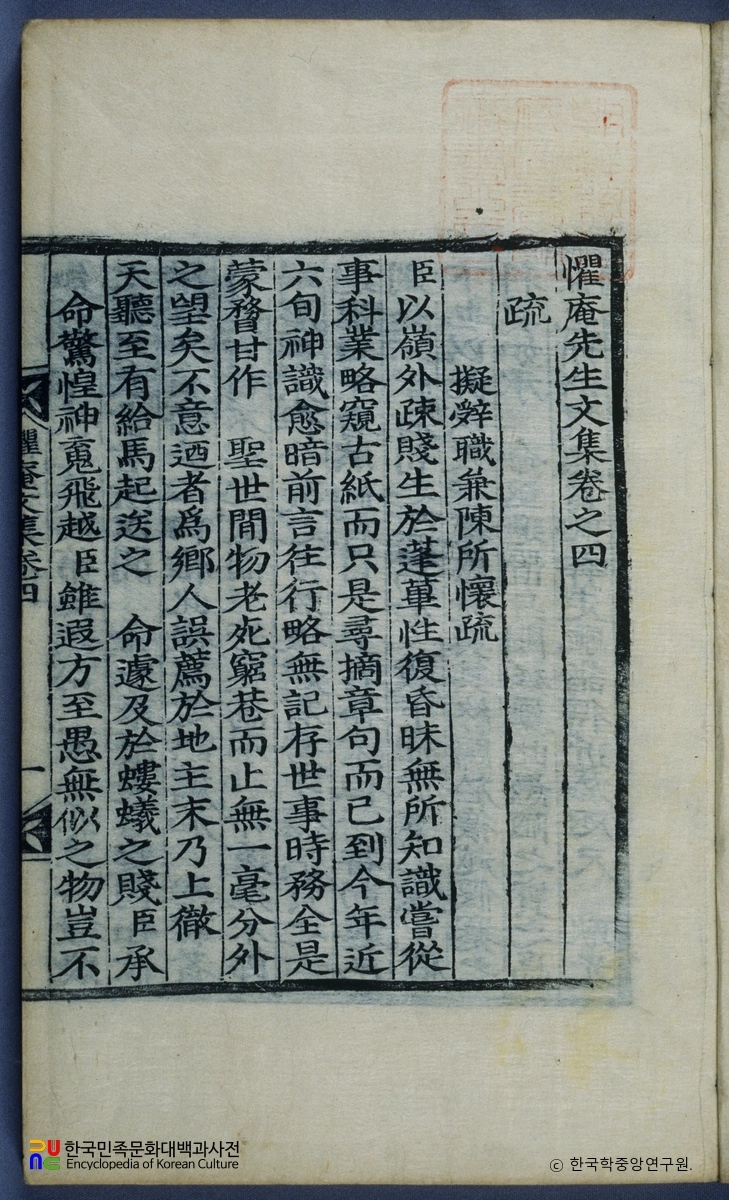 懼庵先生文集卷之四
疏
擬辤職兼陳所懷疏
臣以嶺外疎賤生於蓬蓽性復昏昧無所知識嘗從
事科業略窺古紙而只是尋摘章句而已到今年近
六旬神識愈暗前言往行略無記存世事時務全是
蒙瞀甘作 聖世間物老死窮巷而止無一毫分外
之望矣不意迺者爲鄉人誤薦於地主末乃上徹
天聽至有給馬起送之 命遽及於螻蟻之賤臣承
命驚惶神䰟飛越臣雖遐方至愚無似之物豈不
懼庵文集卷四
一
한국민족문화대백과사전
Encyclopedia of Korean Culture
© 한국학중앙연구원.